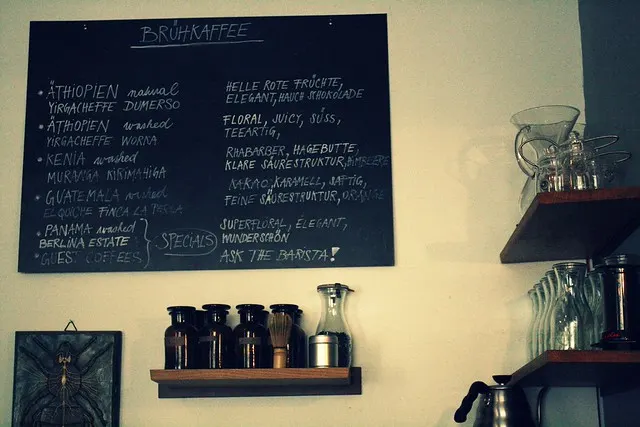 BRÜHKAFFEE
• ÄTHIOPIEN natural
YIRGACHEFFE DUMERSO
HELLE ROTE FRÜCHTE,
ELEGANT, HAUCH SCHOKOLADE
• ÄTHIOPIEN washed
YIRGACHEFFE WORKA
FLORAL, JUICY, SÜSS,
TEEARTIG,
• KENIA washed
MURANGA KIRIMAHIGA
RHABARBER, HAGEBUTTE,
KLARE SÄURESTRUKTUR, HIMBEERE
• GUATEMALA washed
EL QUICHE FINCA LA PERLA
KAKAO, KARAMELL, SAFTIG,
FEINE SÄURESTRUKTUR, ORANGE
• PANAMA washed
BERLINA ESTATE
SUPERFLORAL, ELEGANT,
WUNDERSCHÖN
• GUEST COFFEES
SPECIALS
ASK THE BARISTA!